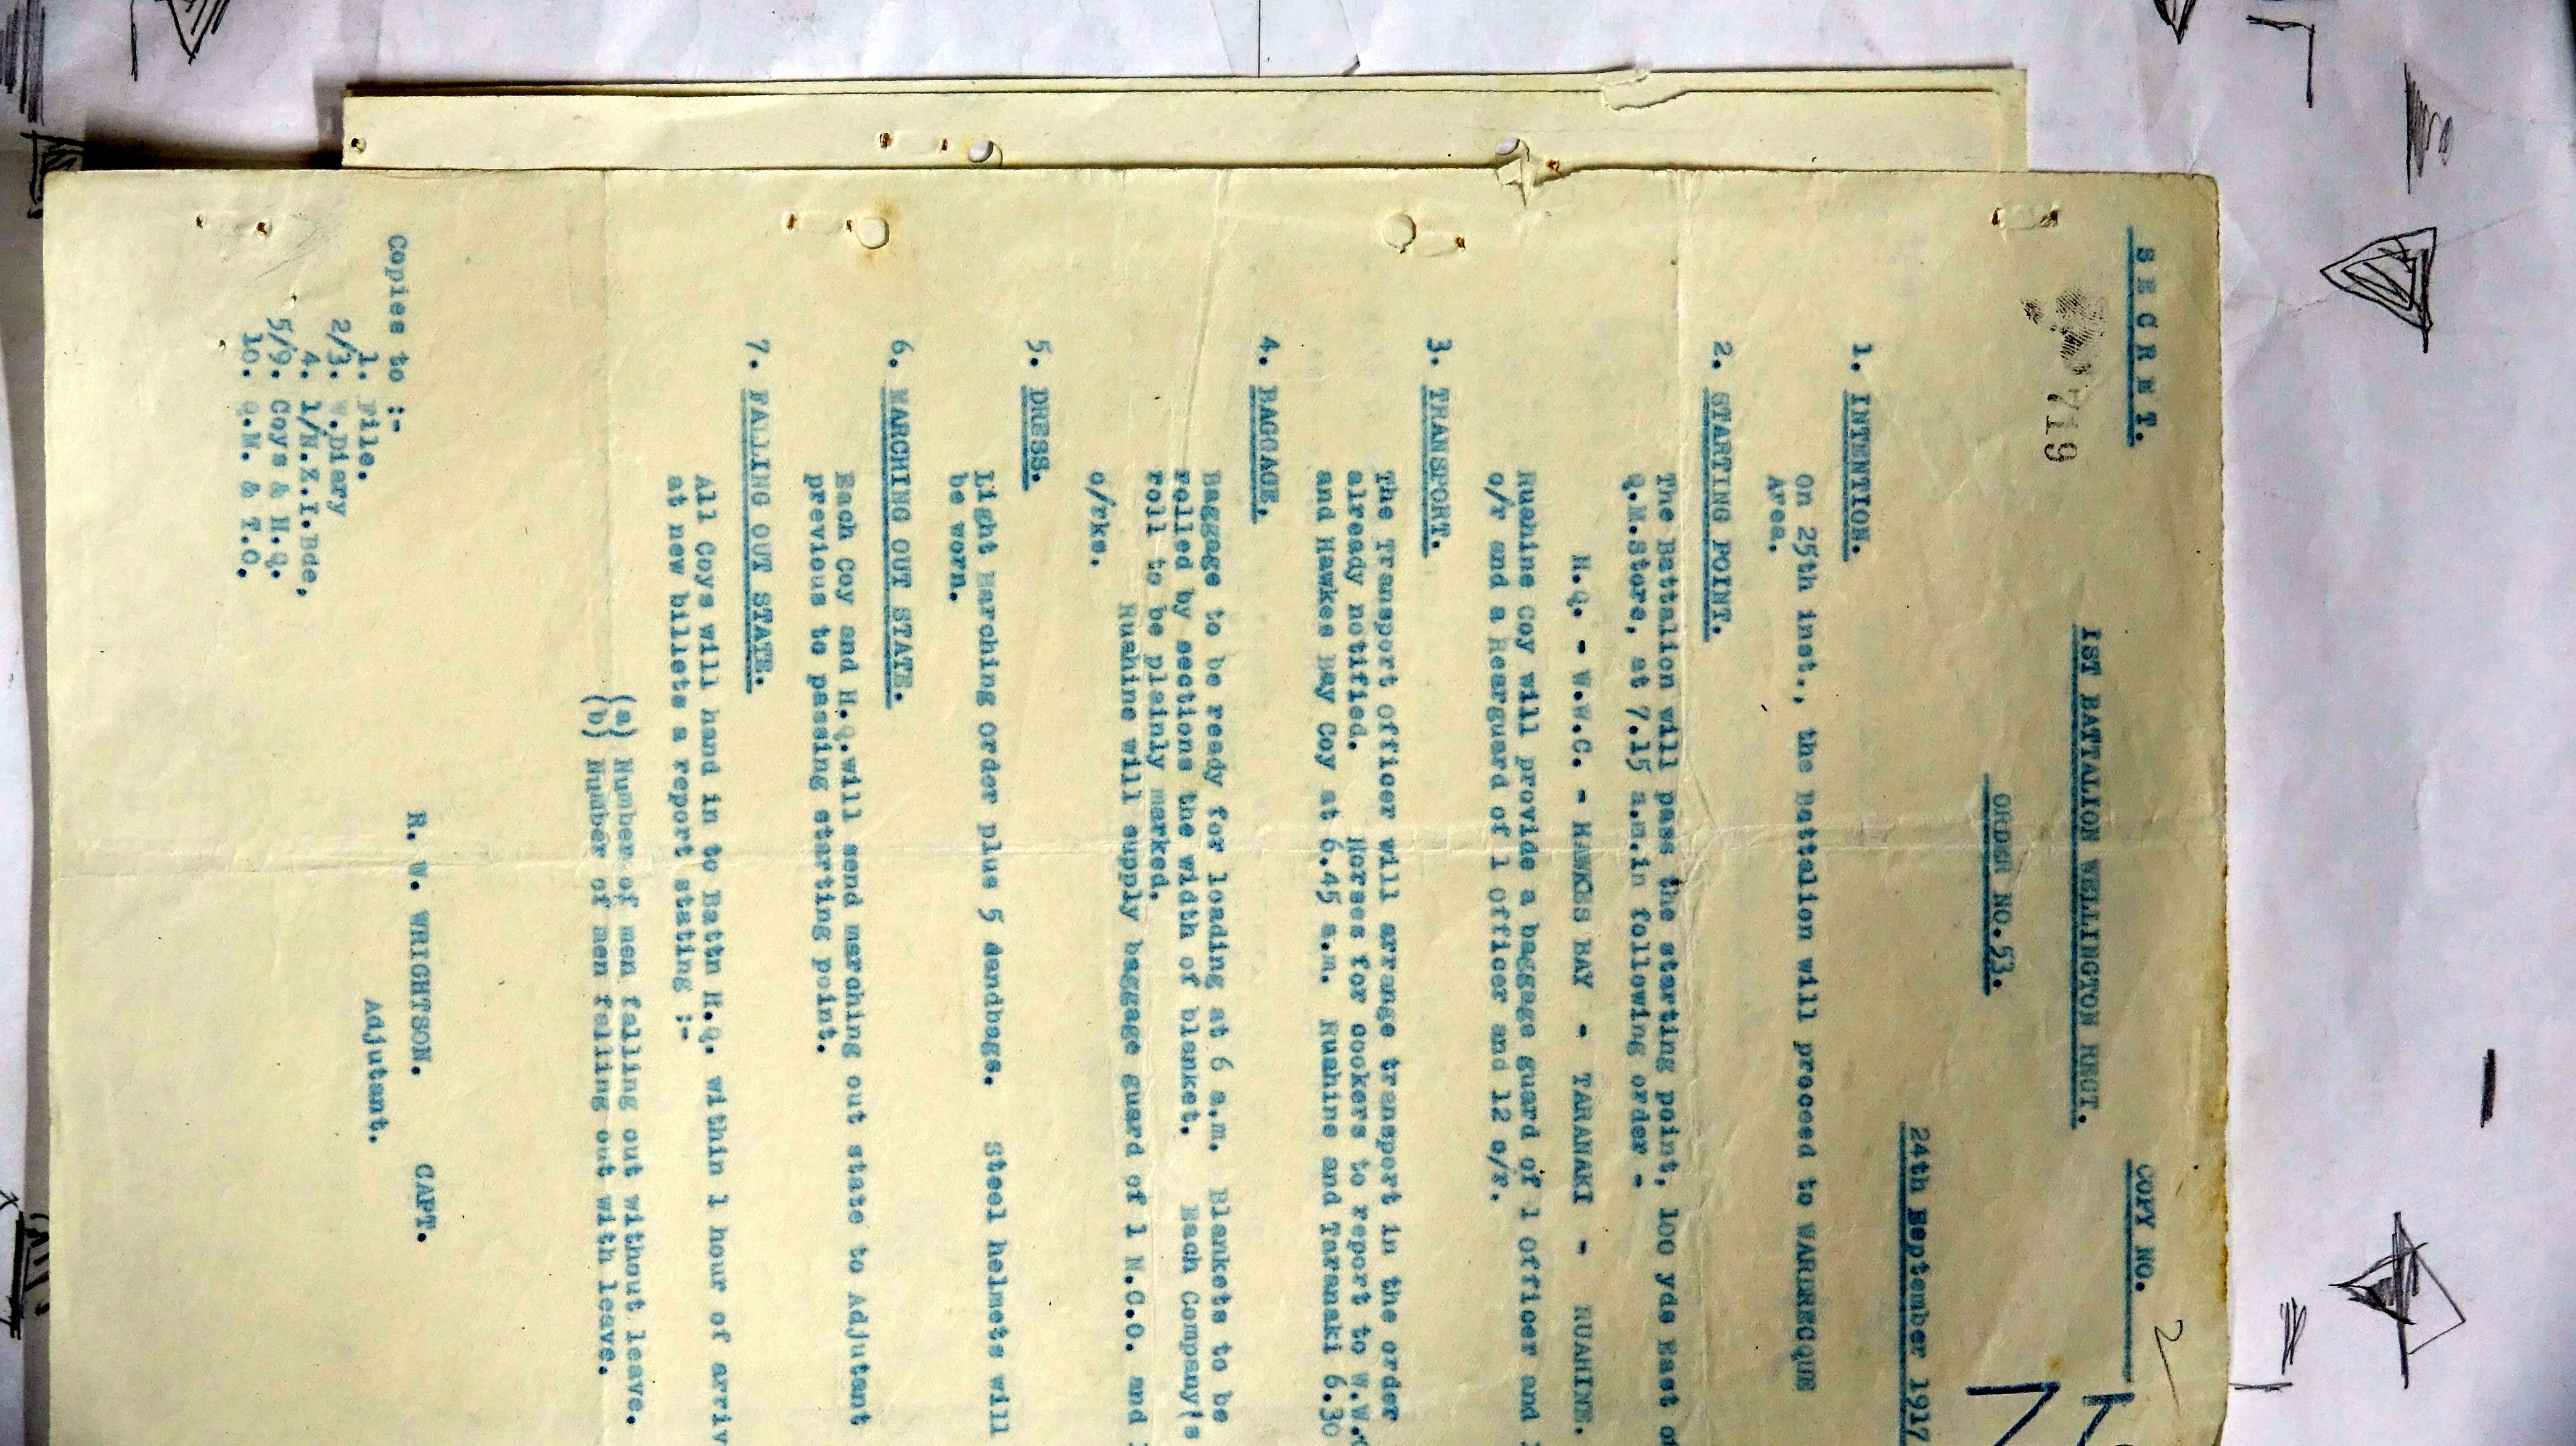 S E C R E T.
COPY NO. 2
1ST BATTALION WELLINGTON REGT.
719
ORDER NO.53.
24th September 1917
1. INTENTION.
On 25th inst., the Battalion will proceed to WARDRECQUE
Area.
2. STARTING POINT.
The Battalion will pass the starting point, 100 yds East
Q.M.Store, at 7.15 a.m.in following order -
H.Q. - W.W.C. - HAWKES BAY - TARANAKI - RUAHINE.
Ruahine Coy will provide a baggage guard of 1 Officer and
o/r and a Rearguard of 1 Officer and 12 o/r.
3. TRANSPORT.
The Transport Officer will arrange transport in the order
already notified. Horses for cookers to report to W.W.
and Hawkes Bay Coy at 6.45 a.m. Ruahine and Taranaki 6.30
4. BAGGAGE.
Baggage to be ready for loading at 6 a.m. Blankets to be
rolled by sections the width of blanket. Each Company's
roll to be plainly marked.
Ruahine will supply baggage guard of 1 N.C.O. and
o/rks.
5. DRESS.
Light Marching Order plus 5 sandbags. Steel helmets will
be worn.
6. MARCHING OUT STATE.
Each Coy and H.Q.will send marching out state to Adjutant
previous to passing starting point.
7. FALLING OUT STATE.
All Coys will hand in to Battn H.Q. within 1 hour of arriv
at new billets a report stating :-
(a) Number of men falling out without leave.
(b) Number of men falling out with leave.
R. W. WRIGHTSON. CAPT.
Adjutant.
Copies to :-
1. File.
2/3. W.Diary
4. 1/N.Z.I.Bde,
5/9. Coys & H.Q.
10. Q.M. & T.O.